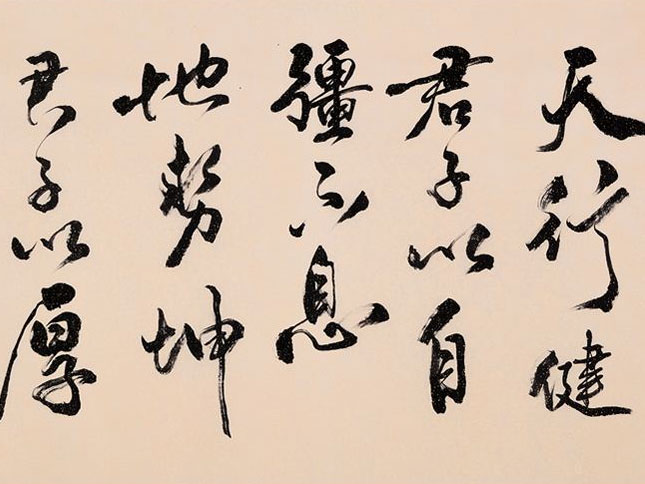 天行健
君子以自
彊不息
地勢坤
君子以厚